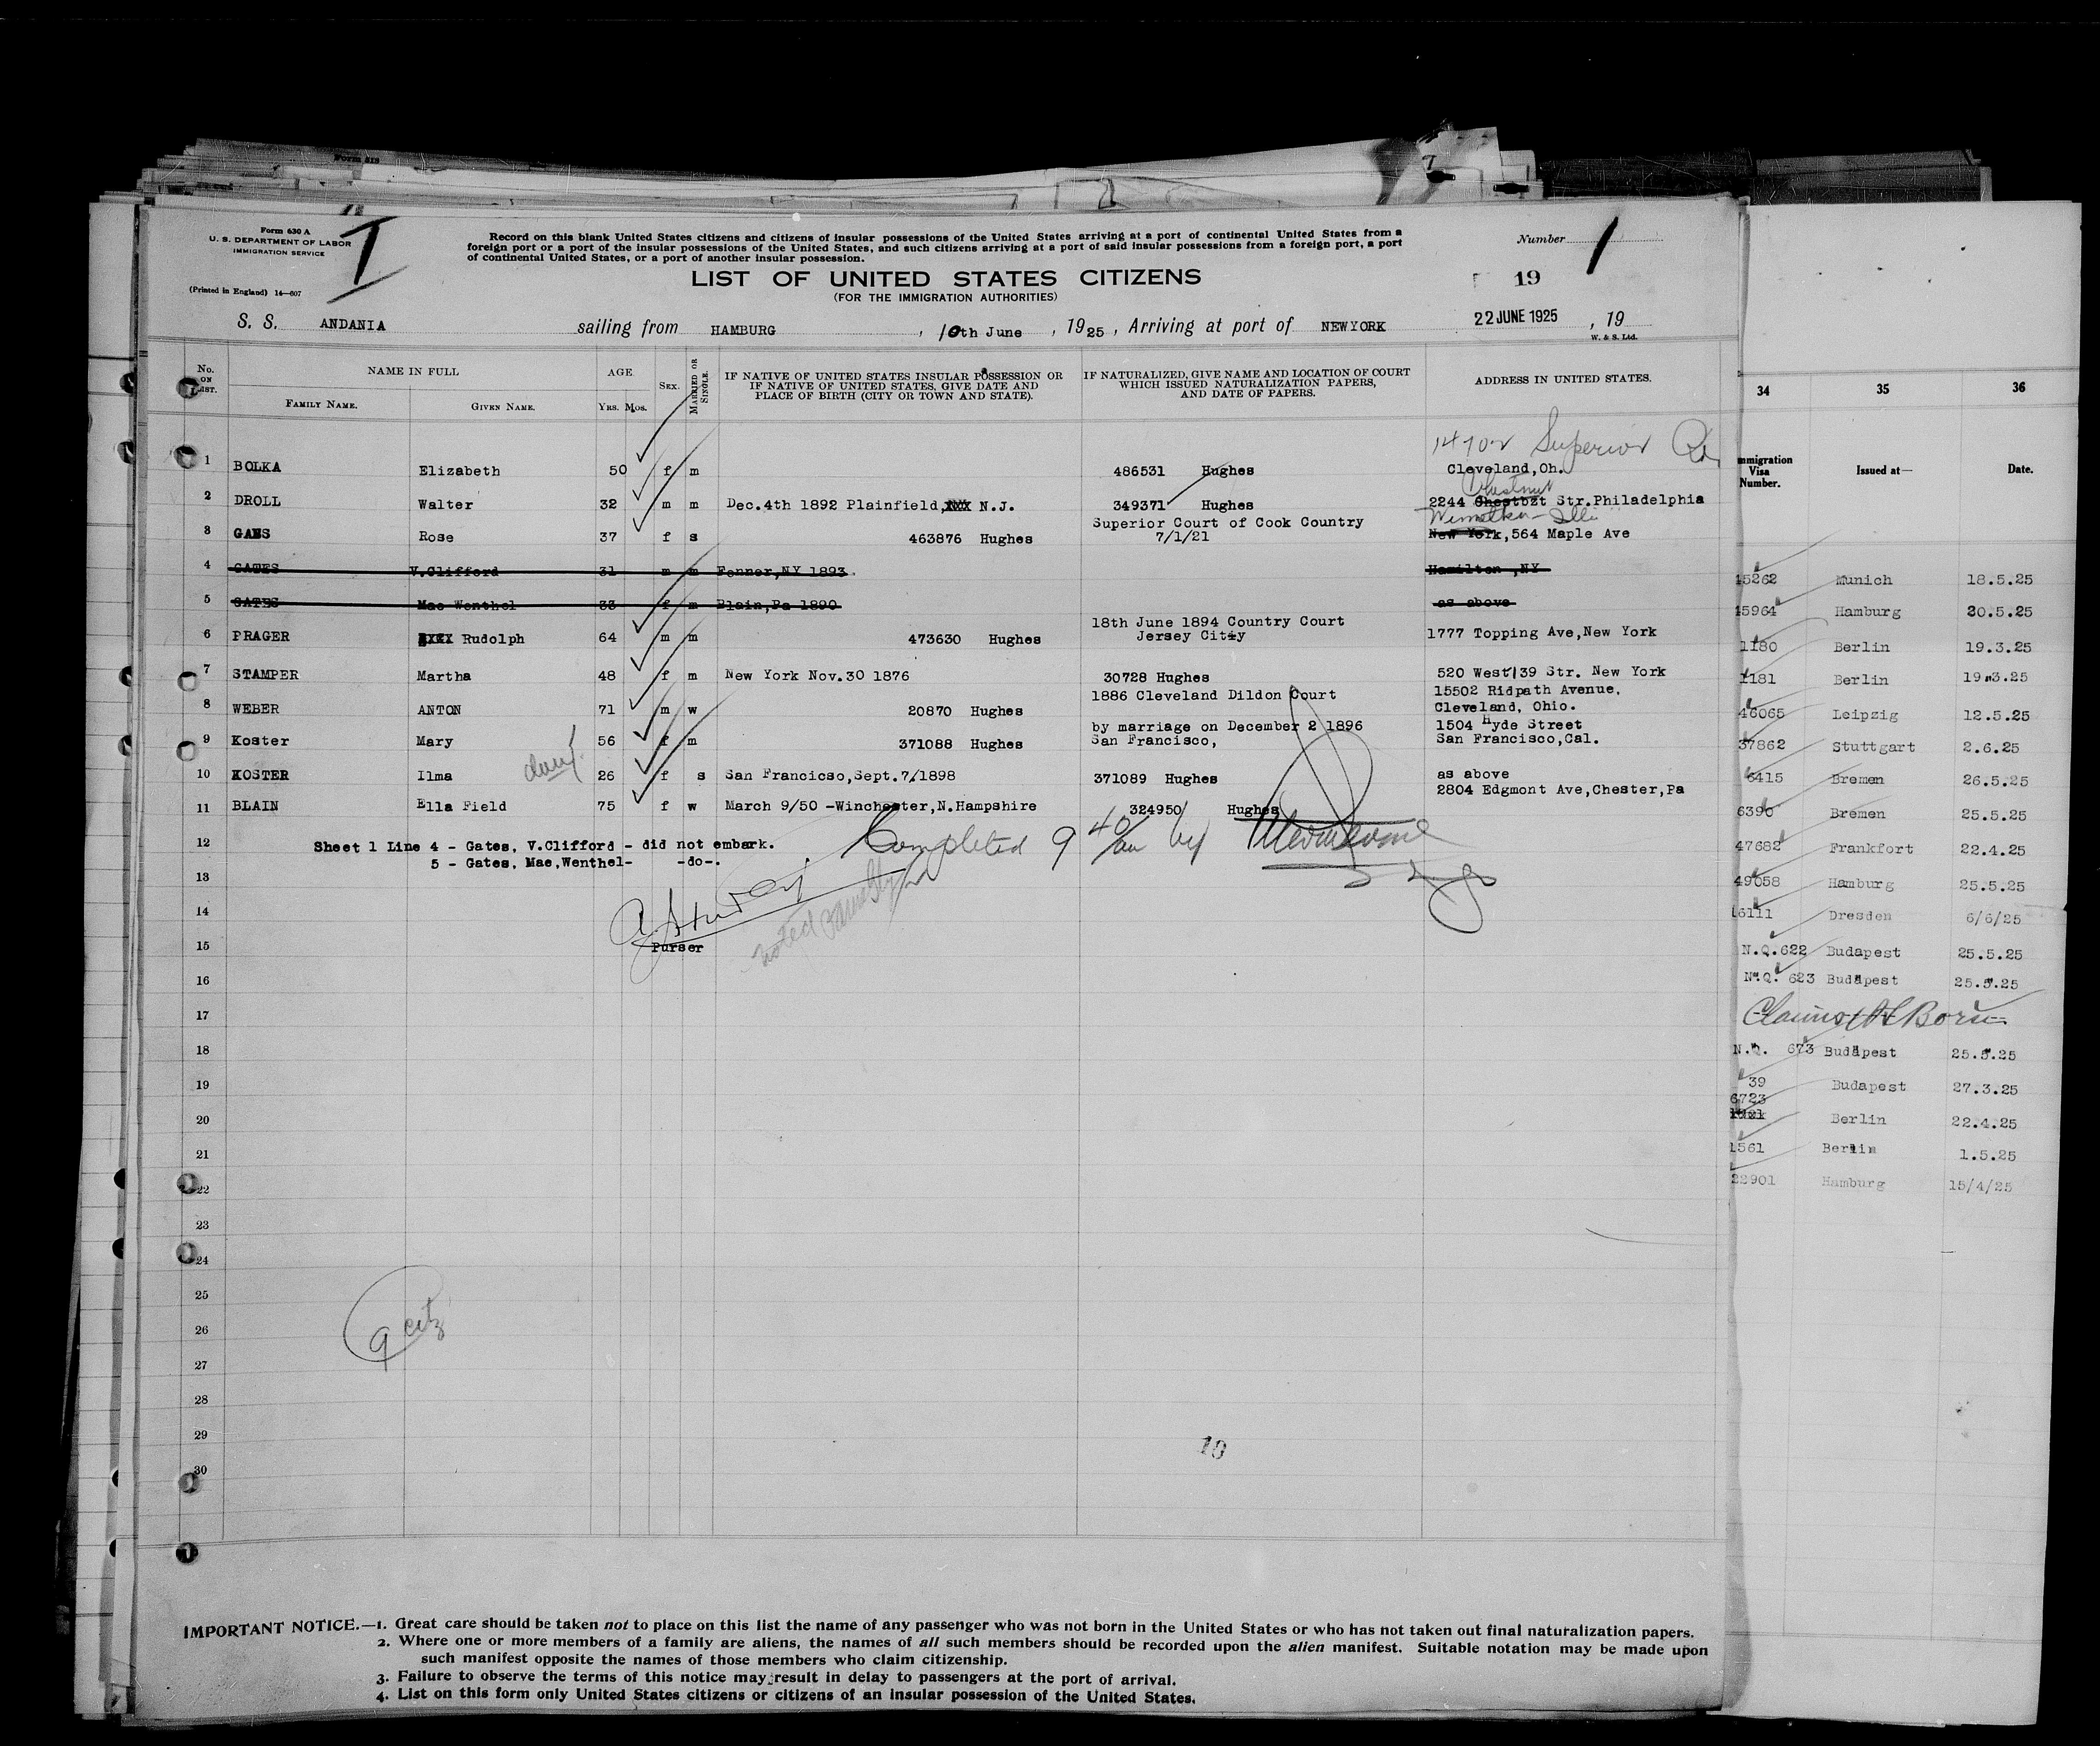 Form 630 A
U. S. DEPARTMENT OF LABOR
IMMIGRATION SERVICE
(Printed in England) 14—607
I
Record on this blank United States citizens and citizens of insular possessions of the United States arriving at a port of continental United States from a
foreign port or a port of the insular possessions of the United States, and such citizens arriving at a port of said insular possessions from a foreign port, a port
of continental United States, or a port of another insular possession.
Number 1
LIST OF UNITED STATES CITIZENS
(FOR THE IMMIGRATION AUTHORITIES)
19
S. S. ANDANIA sailing from HAMBURG, 10th June, 1925, Arriving at port of NEWYORK 22 JUNE 1925, 19
W. & S. Ltd.
No. ON LIST. NAME IN FULL FAMILY NAME. GIVEN NAME. AGE YRS. MOS. SEX. MARRIED OR SINGLE. IF NATIVE OF UNITED STATES INSULAR POSSESSION OR IF NATIVE OF UNITED STATES, GIVE DATE AND PLACE OF BIRTH (CITY OR TOWN AND STATE). IF NATURALIZED, GIVE NAME AND LOCATION OF COURT WHICH ISSUED NATURALIZATION PAPERS, AND DATE OF PAPERS. ADDRESS IN UNITED STATES.
14702 Superior Rd
1 BOLKA Elizabeth 50 f m 486531 Hughes Cleveland,Oh.
Chestnut
2 DROLL Walter 32 m m Dec.4th 1892 Plainfield,XXX N.J. 349371 Hughes 2244 Chestbzt Str.Philadelphia
Superior Court of Cook Country
3 GAES Rose 37 f s 463876 Hughes 7/1/21 New York,564 Maple Ave
4 GATES V.Clifford 31 m m Fenner,NY 1893 Hamilton ,NY
5 GATES Mae Wenthel 33 f m Blain,Pa 1890 as above
18th June 1894 Country Court
6 PRAGER Rudolph 64 m m 473630 Hughes Jersey City 1777 Topping Ave,New York
7 STAMPER Martha 48 f m New York Nov.30 1876 30728 Hughes 520 West 139 Str. New York
1886 Cleveland Dildon Court 15502 Ridpath Avenue,
8 WEBER ANTON 71 m w 20870 Hughes Cleveland, Ohio.
by marriage on December 2 1896 1504 Hyde Street
9 Koster Mary 56 f m 371088 Hughes San Francisco, San Francisco,Cal.
10 KOSTER Ilma 26 f s San Francicso,Sept.7/1898 371089 Hughes as above
11 BLAIN Ella Field 75 f w March 9/50 -Winchester,N.Hampshire 324950 Hughes 2804 Edgmont Ave,Chester,Pa
12 Sheet 1 Line 4 - Gates, V.Clifford - did not embark.
5 - Gates, Mae,Wenthel- -do-.
Completed 9 40 am by
13
14
15 Purser
16
17
18
19
20
21
22
23
24
25
26
9 citz
27
28
29
10
30
IMPORTANT NOTICE.—1. Great care should be taken not to place on this list the name of any passenger who was not born in the United States or who has not taken out final naturalization papers.
2. Where one or more members of a family are aliens, the names of all such members should be recorded upon the alien manifest. Suitable notation may be made upon
such manifest opposite the names of those members who claim citizenship.
3. Failure to observe the terms of this notice may result in delay to passengers at the port of arrival.
4. List on this form only United States citizens or citizens of an insular possession of the United States.
34 35 36
Immigration Visa Number. Issued at— Date.
15262 Munich 18.5.25
15964 Hamburg 20.5.25
1180 Berlin 19.3.25
1181 Berlin 19.3.25
46065 Leipzig 12.5.25
37862 Stuttgart 2.6.25
6415 Bremen 26.5.25
6390 Bremen 25.5.25
47682 Frankfort 22.4.25
49058 Hamburg 25.5.25
16111 Dresden 6/6/25
N.Q.622 Budapest 25.5.25
N.Q. 623 Budapest 25.5.25
Claims US Born
N.Q. 673 Budapest 25.5.25
39 Budapest 27.3.25
6723
Berlin 22.4.25
1561 Berlin 1.5.25
22901 Hamburg 15/4/25